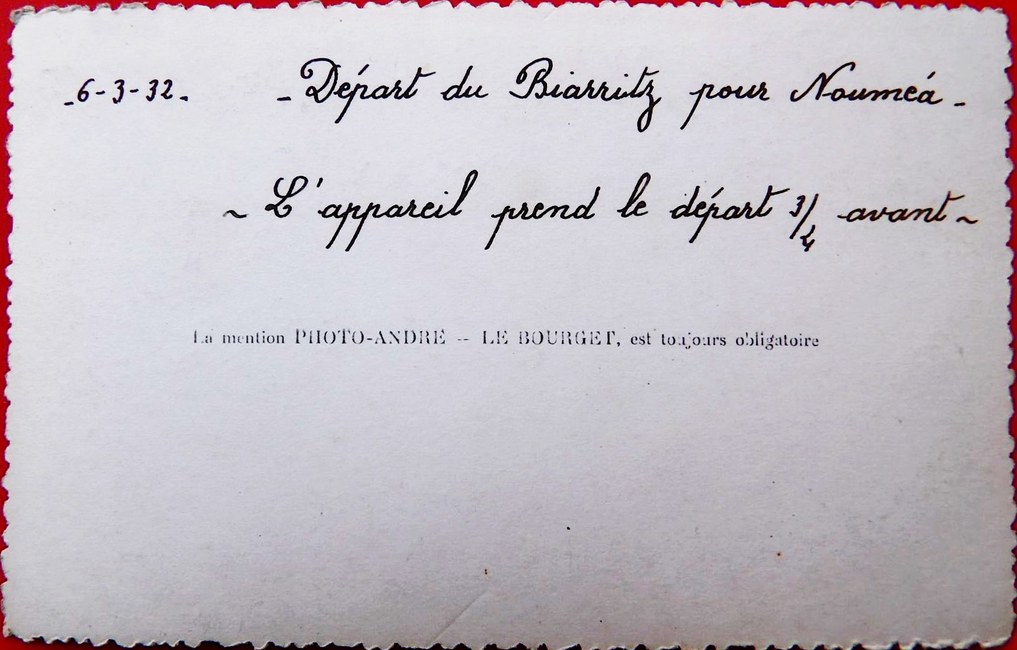 -6-3-32- -Départ du Biarritz pour Nouméa-
~ L'appareil prend le départ 3/4 avant ~
La mention PHOTO-ANDRÉ -- LE BOURGET, est toujours obligatoire